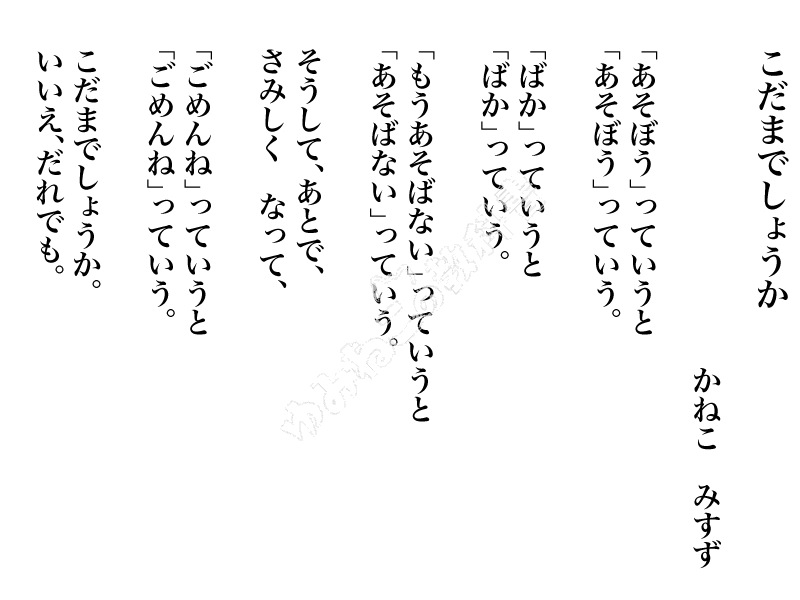 こだまでしょうか
かねこ　みすず
「あそぼう」っていうと
「あそぼう」っていう。
「ばか」っていうと
「ばか」っていう。
「もうあそばない」っていうと
「あそばない」っていう。
そうして、あとで、
さみしく　なって、
「ごめんね」っていうと
「ごめんね」っていう。
こだまでしょうか。
いいえ、だれでも。